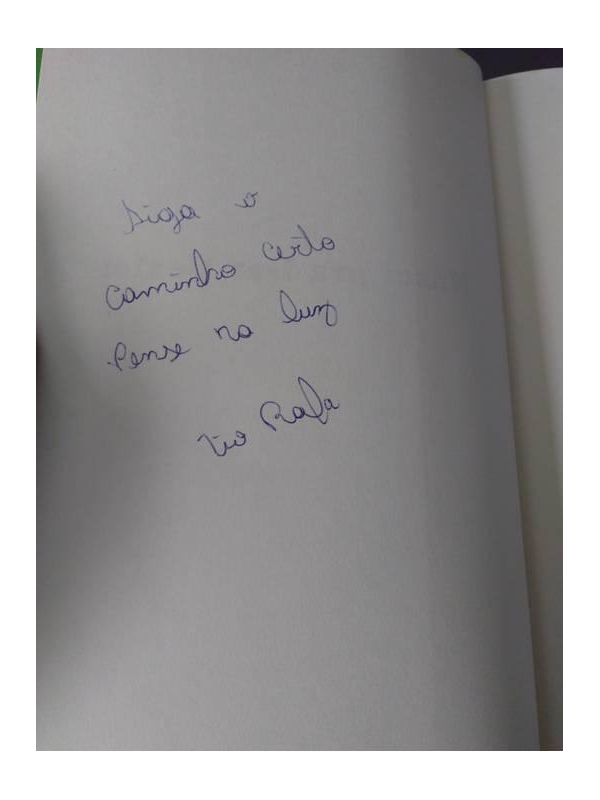 Siga o
caminho certo
Pense na luz
tio Rafa